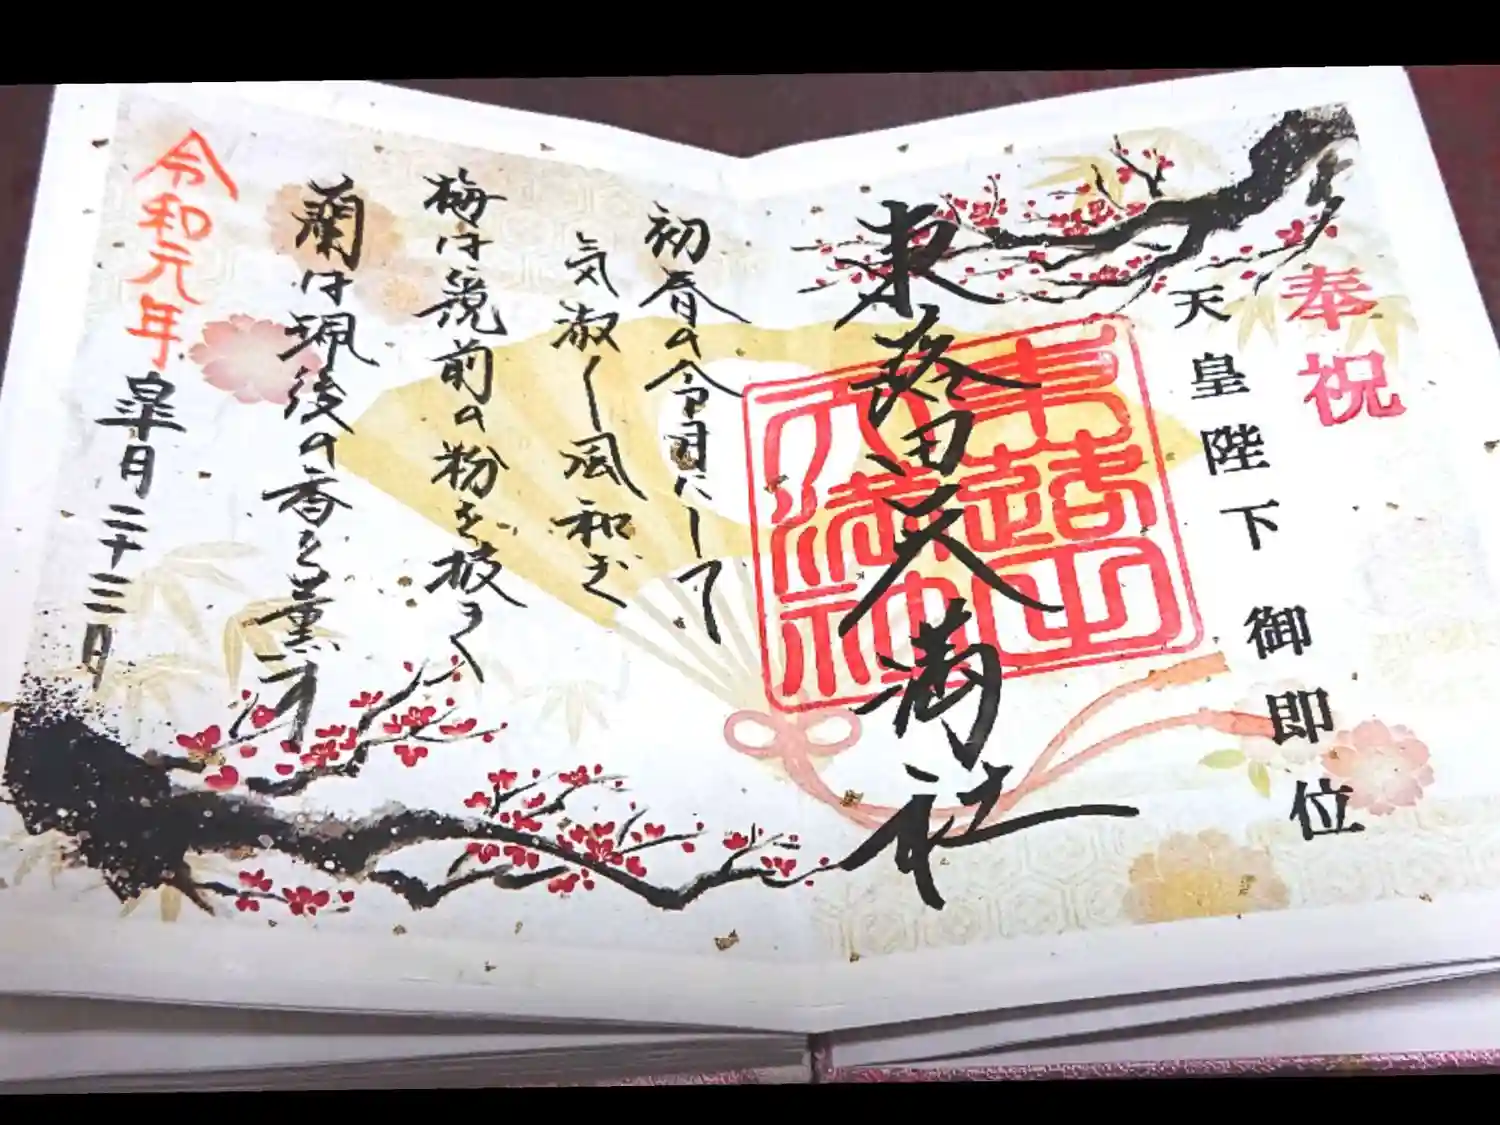 奉祝
天皇陛下 御即位
東蕗田天満社
初春の令月にして
気淑く風和ぎ
梅は鏡前の粉を披らく
蘭は珮後の香を薫す
令和元年皐月二十三日